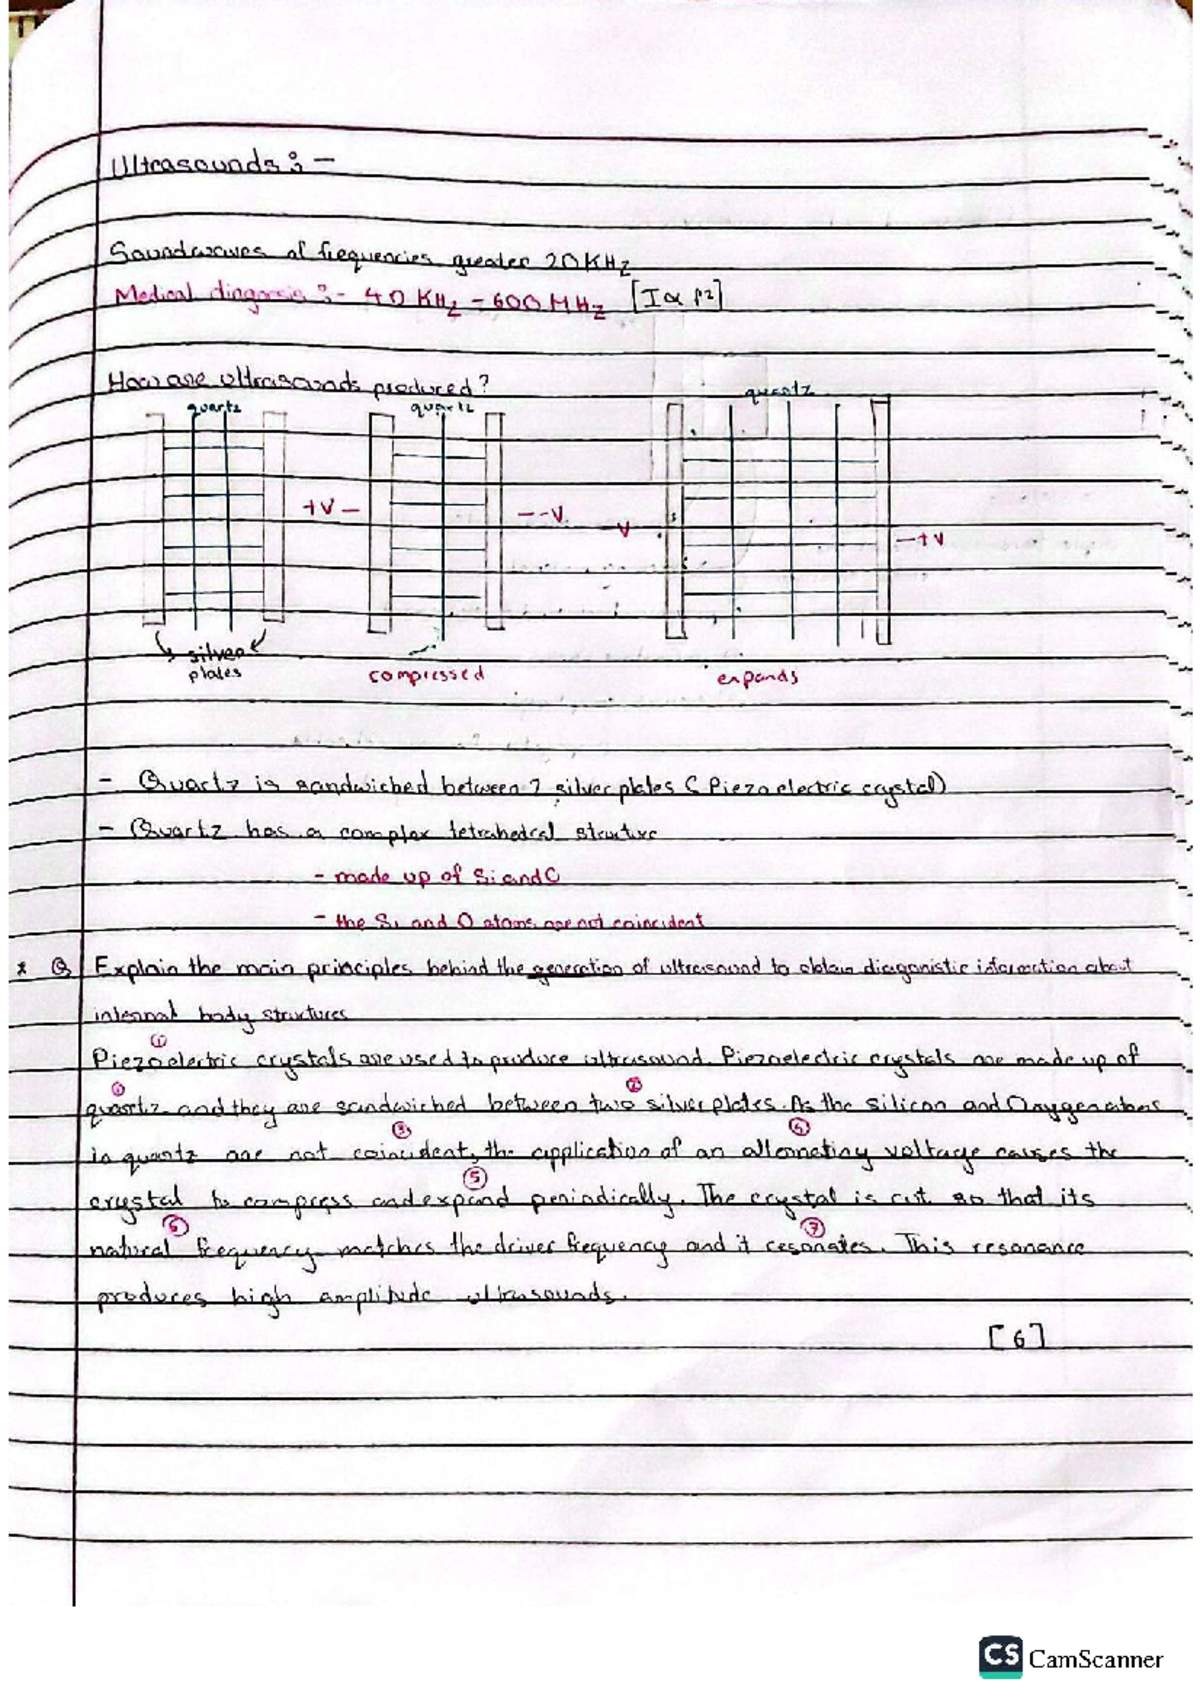 Ultrasounds :-
Soundwaves of frequencies greater 20KHz
Medical diagnosis :- 40 KHz - 600 MHz [I ∝ f²]
How are ultrasounds produced?
quartz quartz quartz
+V - - -V -V - +V
silver
plates compressed expands
- Quartz is sandwiched between 2 silver plates (Piezoelectric crystal)
- Quartz has a complex tetrahedral structure
- made up of Si and O
- the Si and O atoms are not coincident
* Q Explain the main principles behind the generation of ultrasound to obtain diagonistic information about
internal body structures
①
Piezoelectric crystals are used to produce ultrasound. Piezoelectric crystals are made up of
① ②
quartz and they are sandwiched between two silver plates. As the silicon and Oxygen atoms
③ ④
in quartz are not coincident, the application of an alternating voltage causes the
⑤
crystal to compress and expand periodically. The crystal is cut so that its
⑥ ⑦
natural frequency matches the driver frequency and it resonates. This resonance
produces high amplitude ultrasounds.
[6]
CS CamScanner